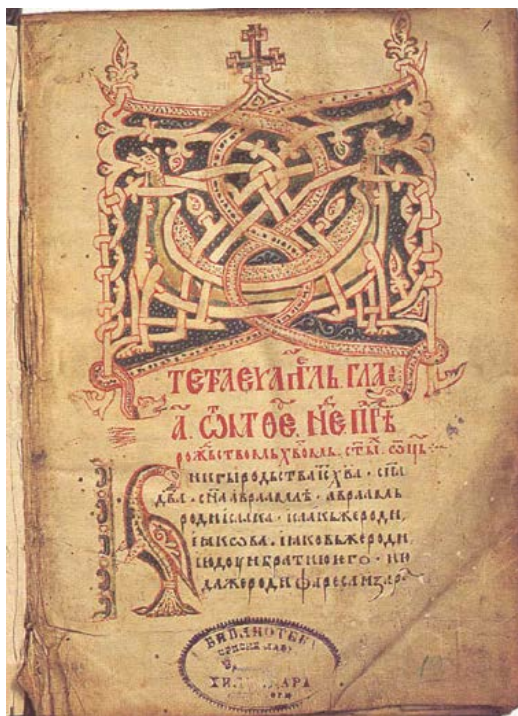 ТЕТАЕУАГГЛЬ ГЛА
А҃. Ѿ МТѲЕ҃. НЕ҃ ПРѢ
рожьствомь хв҃омь. ст҃ы. ѿць
Книгы родьства ісх҃ва. сн҃а
дв҃а. сн҃а авраамлѣ. авраамь
роди ісака. ісакь же роди
іакова. іаковь же роди
июдоу и братию ѥго. ию
да же роди фареса и зара
БИБЛИОТЕ
СРПСКЕ ЛАВ
ХИЛ АРА